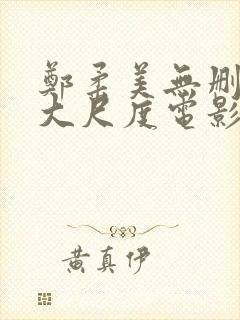 鄭柔美無刪
大尺度電影
黃真伊